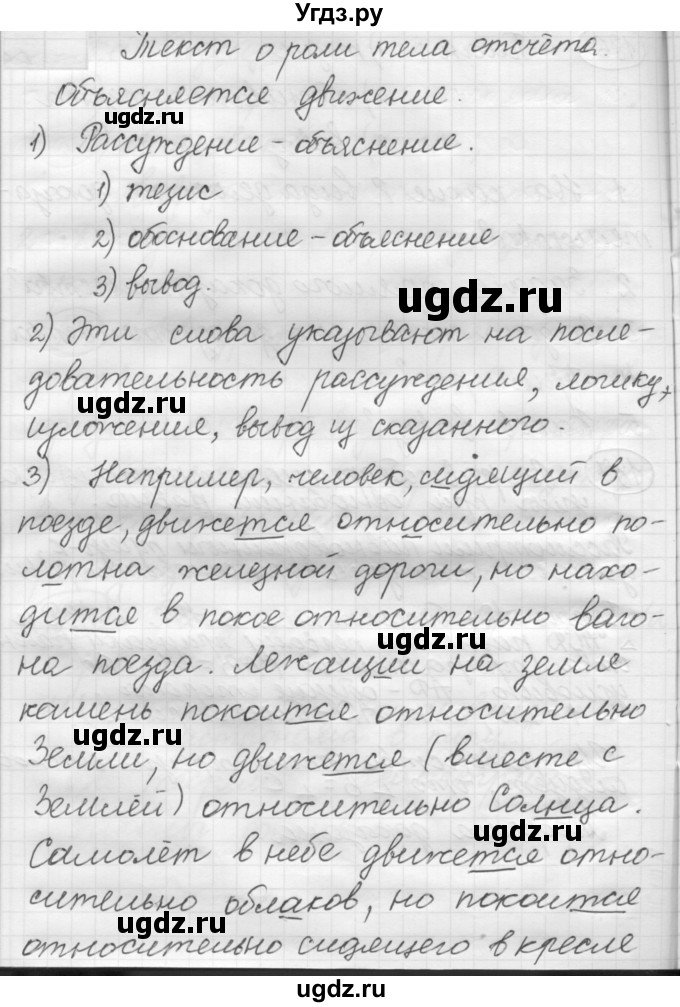 Угдз.ру
Текст о роли тела отсчёта.
объясняется движение.
ugdz.ru
1) Рассуждение - объяснение.
1) тезис
2) обоснование - объяснение
3) вывод.
ugdz.ru
2) Эти слова указывают на после-
довательность рассуждения, логику,
ugdz.ru
изложения, вывод из сказанного.
3) Например, человек, сидящий в
поезде, движется относительно по-
лотна железной дороги, но нахо-
дится в покое относительно ваго-
ugdz.ru
на поезда. Лежащий на земле
камень покоится относительно
ugdz.ru
Земли, но движется (вместе с
Землёй) относительно Солнца.
Самолёт в небе движется отно-
сительно облаков, но покоится
ugdz.ru
относительно сидящего в кресле
Угдз.ру